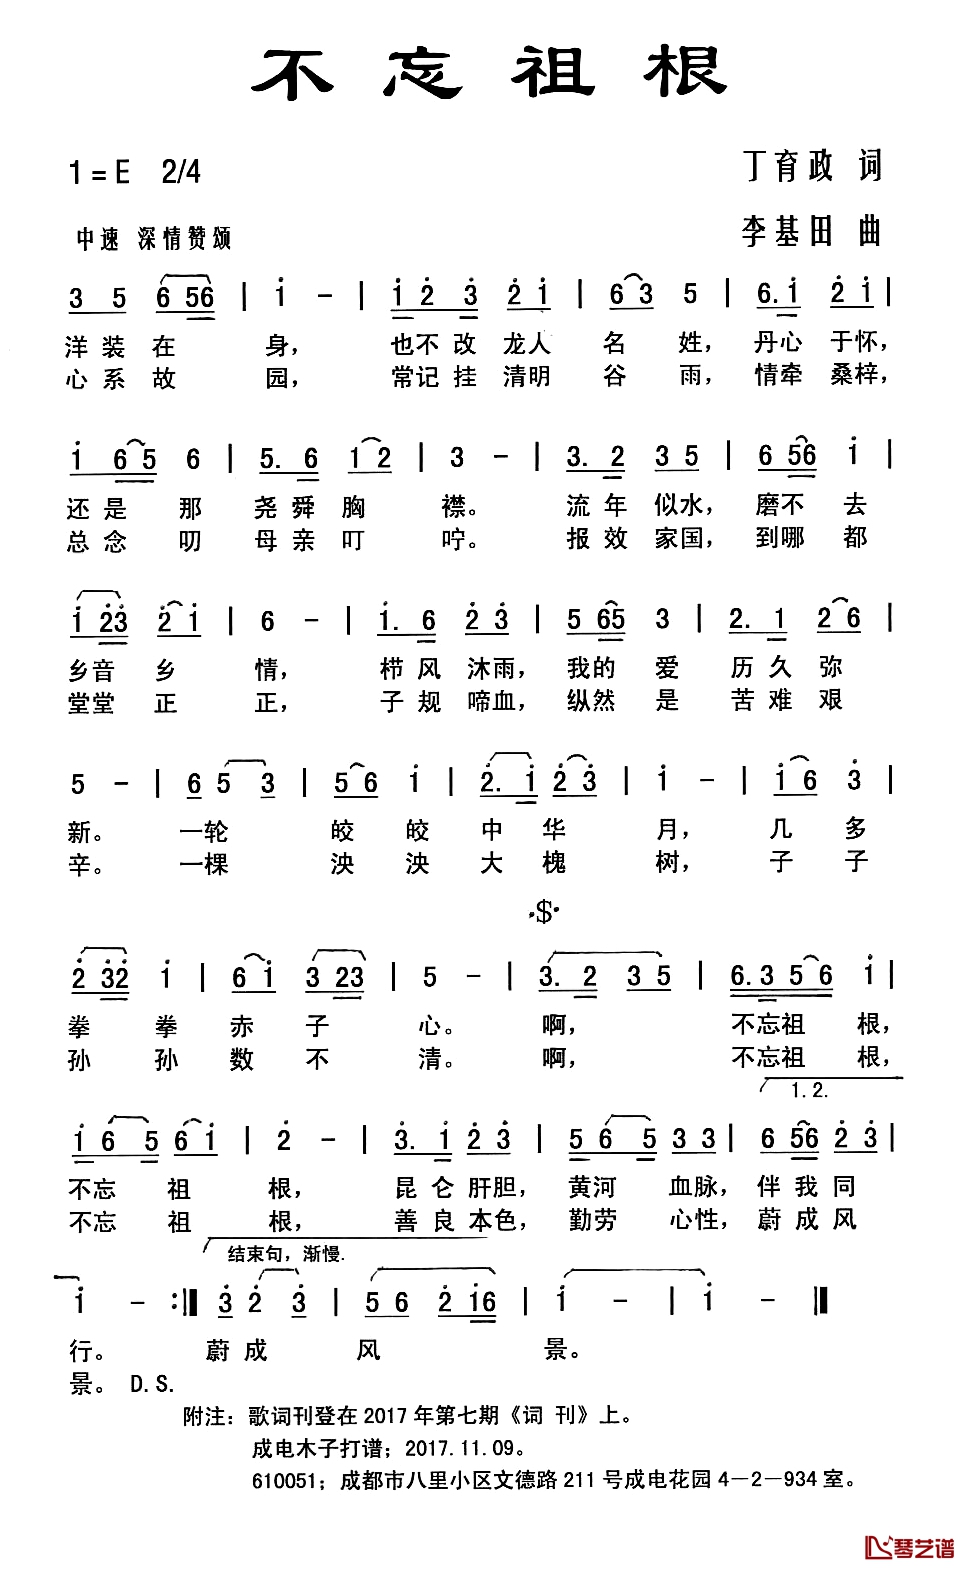 不忘祖根
1=E 2/4
丁育政 词
中速 深情赞颂
李基田 曲
3 5 6 56 | i - | i 2 3 2 i | 6 3 5 | 6. i 2 i |
洋装在 身， 也不改 龙人 名 姓， 丹心 于怀，
心系故 园， 常记挂 清明 谷 雨， 情牵 桑梓，
i 6 5 6 | 5. 6 1 2 | 3 - | 3. 2 3 5 | 6 56 i |
还是 那 尧舜胸 襟。 流年 似水， 磨不 去
总念 叨 母亲叮 咛。 报效 家国， 到哪 都
i 23 2 i | 6 - | i. 6 2 3 | 5 65 3 | 2. 1 2 6 |
乡音 乡 情， 栉风 沐雨， 我的 爱 历久弥
堂堂 正 正， 子规 啼血， 纵然 是 苦难艰
5 - | 6 5 3 | 5 6 i | 2. i 2 3 | i - | i 6 3 |
新。 一轮 皎皎 中华 月， 几多
辛。 一棵 泱泱 大槐 树， 子子
·$·
2 32 i | 6 i 3 23 | 5 - | 3. 2 3 5 | 6.3 5 6 i |
拳拳 赤子 心。 啊， 不忘祖 根，
孙孙 数不 清。 啊， 不忘祖 根，
1.2.
i 6 5 6 i | 2 - | 3. i 2 3 | 5 6 5 3 3 | 6 56 2 3 |
不忘 祖 根， 昆仑 肝胆， 黄河 血脉， 伴我同
不忘 祖 根， 善良 本色， 勤劳 心性， 蔚成风
结束句，渐慢.
i - :‖ 3 2 3 | 5 6 2 i6 | i - | i - ‖
行。 蔚成 风 景。
景。 D.S.
附注：歌词刊登在2017年第七期《词 刊》上。
成电木子打谱；2017.11.09。
610051；成都市八里小区文德路211号成电花园4－2－934室。
琴艺谱